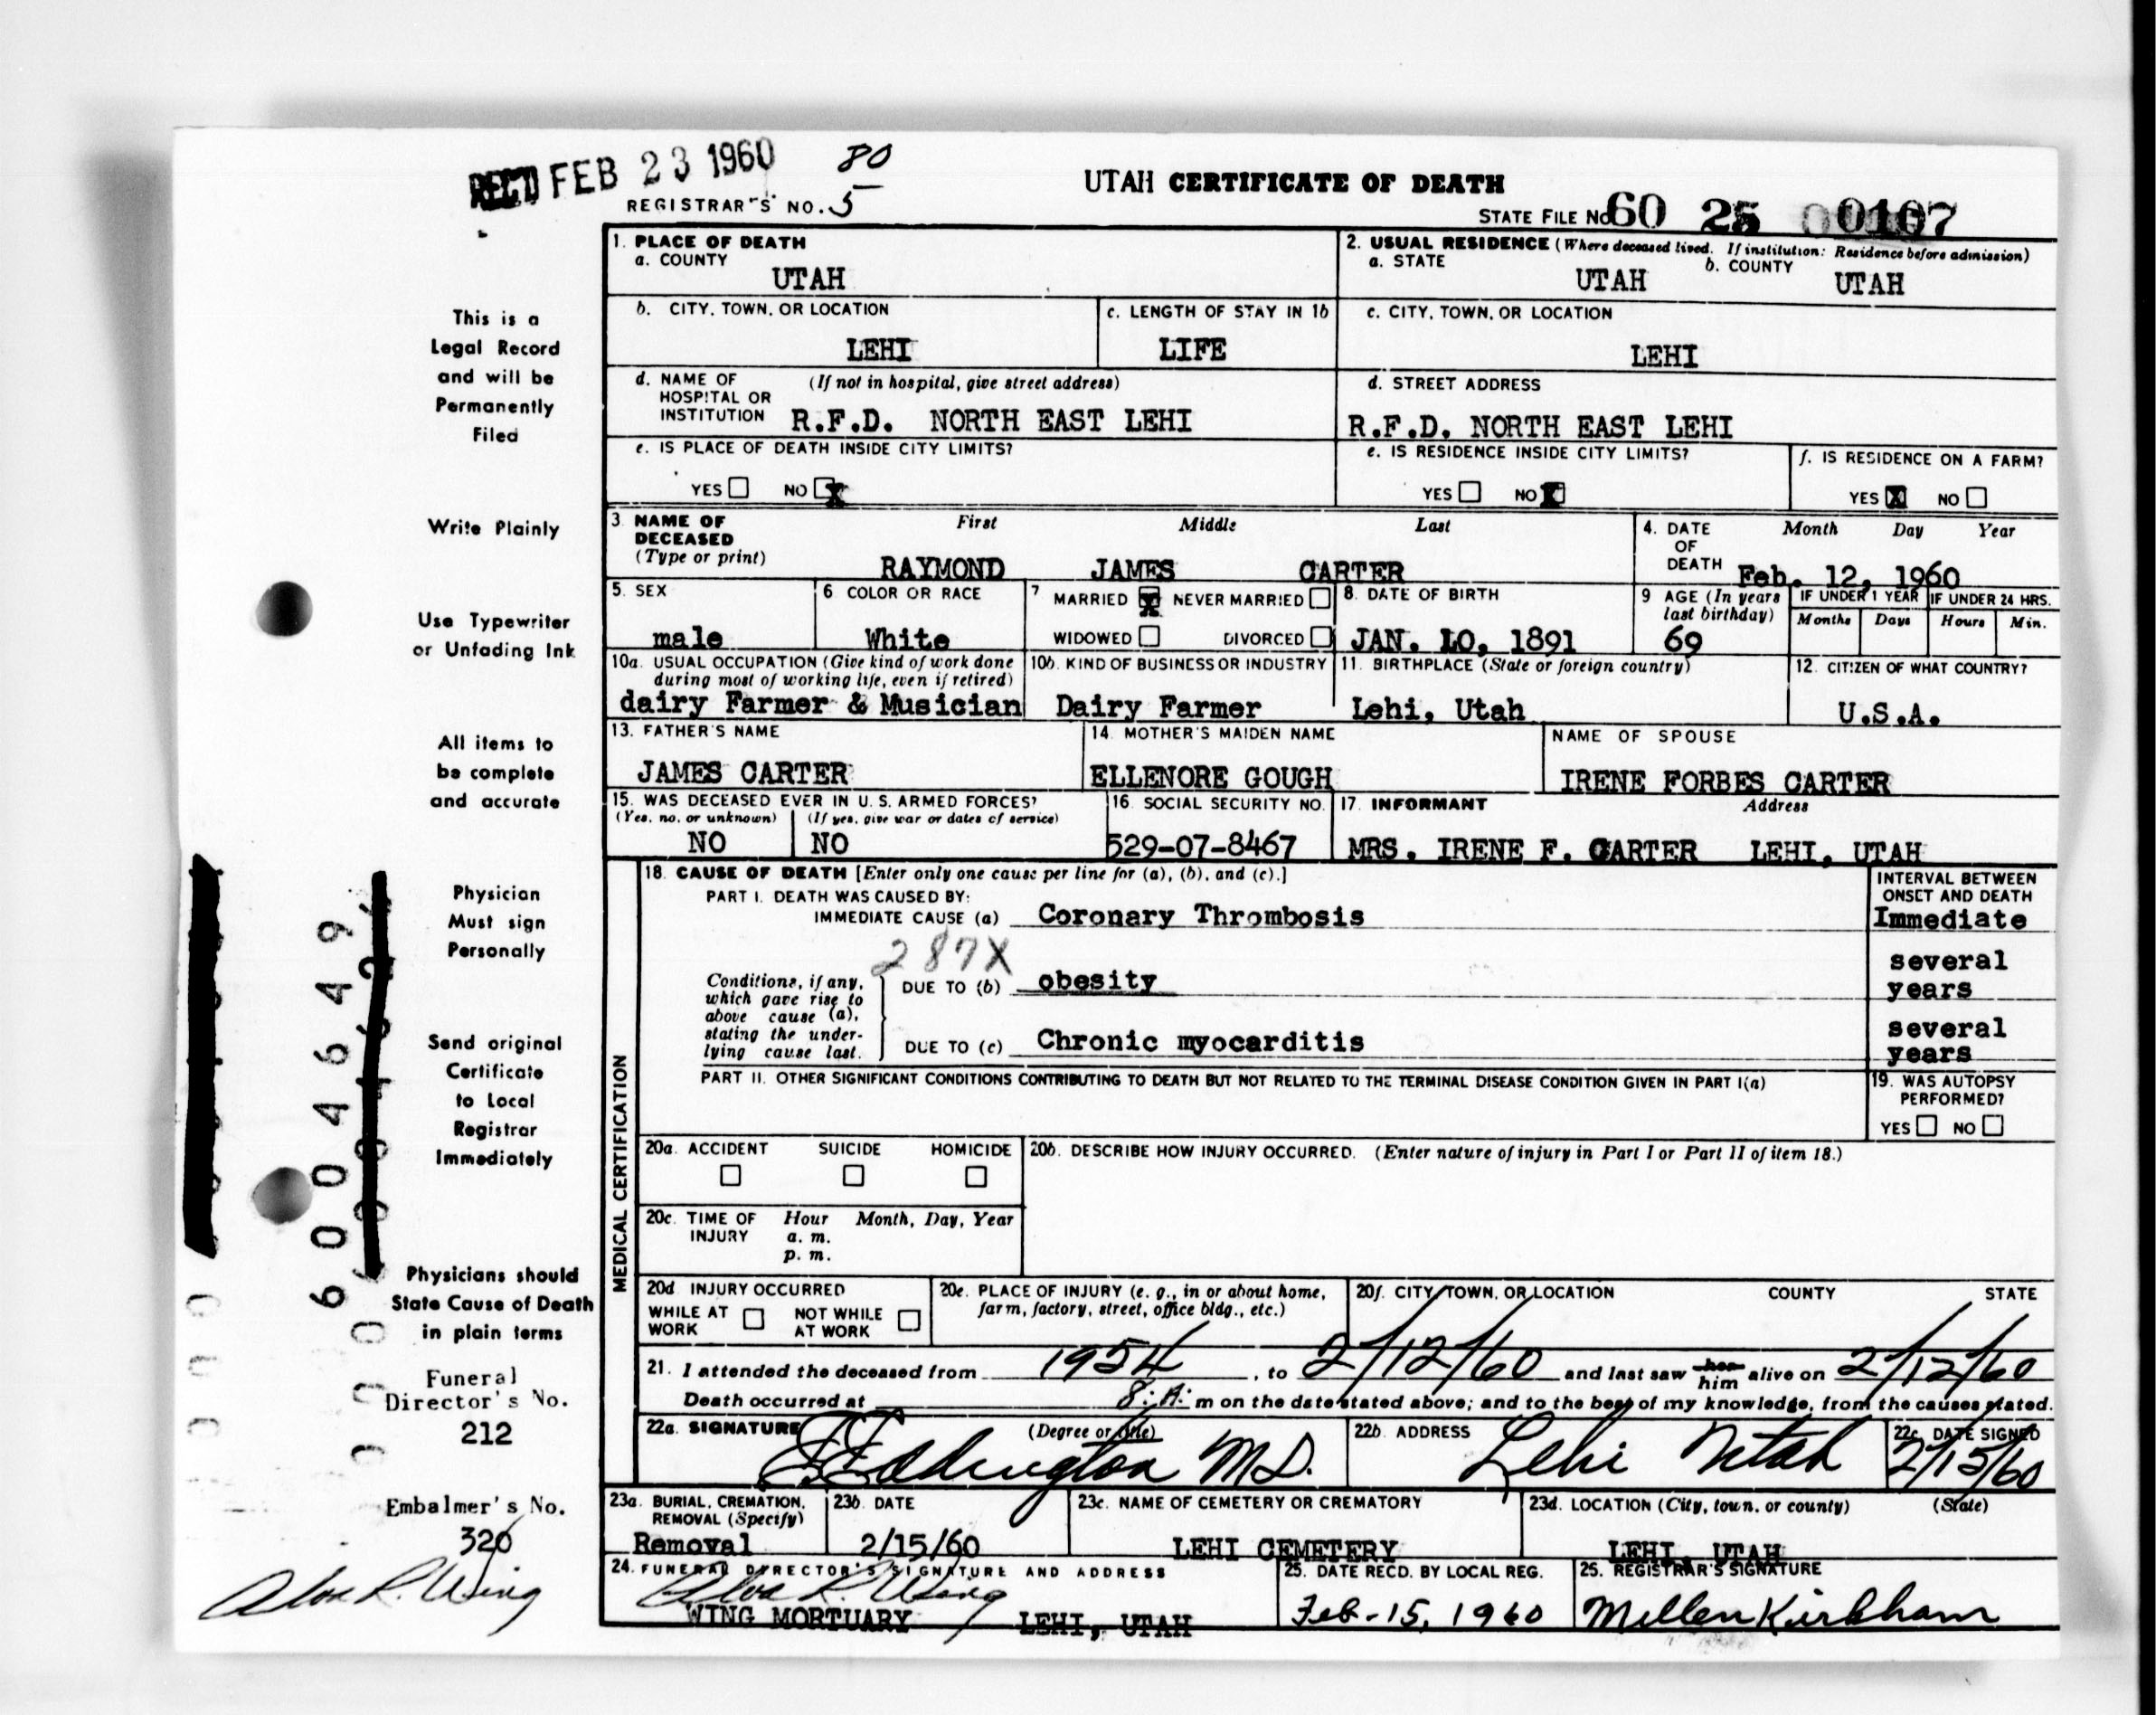 REC'D FEB 23 1960
80
REGISTRAR'S NO. 5
UTAH CERTIFICATE OF DEATH
STATE FILE NO 60 25 00107
This is a
Legal Record
and will be
Permanently
Filed
Write Plainly
Use Typewriter
or Unfading Ink
All items to
be complete
and accurate
Physician
Must sign
Personally
Send original
Certificate
to Local
Registrar
Immediately
Physicians should
State Cause of Death
in plain terms
Funeral
Director's No.
212
Embalmer's No.
320
Alva R. Wing
6004649
1. PLACE OF DEATH
a. COUNTY
UTAH
2. USUAL RESIDENCE (Where deceased lived. If institution: Residence before admission)
a. STATE
UTAH
b. COUNTY
UTAH
b. CITY, TOWN, OR LOCATION
LEHI
c. LENGTH OF STAY IN 1b
LIFE
c. CITY, TOWN, OR LOCATION
LEHI
d. NAME OF HOSPITAL OR INSTITUTION
(If not in hospital, give street address)
R.F.D. NORTH EAST LEHI
d. STREET ADDRESS
R.F.D. NORTH EAST LEHI
e. IS PLACE OF DEATH INSIDE CITY LIMITS?
YES NO X
e. IS RESIDENCE INSIDE CITY LIMITS?
YES NO X
f. IS RESIDENCE ON A FARM?
YES X NO
3. NAME OF DECEASED (Type or print)
First Middle Last
RAYMOND JAMES CARTER
4. DATE OF DEATH
Month Day Year
Feb. 12, 1960
5. SEX
male
6 COLOR OR RACE
White
7 MARRIED X NEVER MARRIED
WIDOWED DIVORCED
8. DATE OF BIRTH
JAN. 10, 1891
9 AGE (In years last birthday)
69
IF UNDER 1 YEAR
Months Days
IF UNDER 24 HRS.
Hours Min.
10a. USUAL OCCUPATION (Give kind of work done during most of working life, even if retired)
dairy Farmer & Musician
10b. KIND OF BUSINESS OR INDUSTRY
Dairy Farmer
11. BIRTHPLACE (State or foreign country)
Lehi, Utah
12. CITIZEN OF WHAT COUNTRY?
U.S.A.
13. FATHER'S NAME
JAMES CARTER
14. MOTHER'S MAIDEN NAME
ELLENORE GOUGH
NAME OF SPOUSE
IRENE FORBES CARTER
15. WAS DECEASED EVER IN U. S. ARMED FORCES?
(Yes, no, or unknown) (If yes, give war or dates of service)
NO NO
16. SOCIAL SECURITY NO.
529-07-8467
17. INFORMANT Address
MRS. IRENE F. CARTER LEHI, UTAH
MEDICAL CERTIFICATION
18. CAUSE OF DEATH [Enter only one cause per line for (a), (b), and (c).]
PART I. DEATH WAS CAUSED BY:
IMMEDIATE CAUSE (a) Coronary Thrombosis
INTERVAL BETWEEN ONSET AND DEATH
Immediate
287X
Conditions, if any, which gave rise to above cause (a), stating the underlying cause last.
DUE TO (b) obesity
several years
DUE TO (c) Chronic myocarditis
several years
PART II. OTHER SIGNIFICANT CONDITIONS CONTRIBUTING TO DEATH BUT NOT RELATED TO THE TERMINAL DISEASE CONDITION GIVEN IN PART I(a)
19. WAS AUTOPSY PERFORMED?
YES NO
20a. ACCIDENT SUICIDE HOMICIDE
20b. DESCRIBE HOW INJURY OCCURRED. (Enter nature of injury in Part I or Part II of item 18.)
20c. TIME OF INJURY
Hour Month, Day, Year
a. m.
p. m.
20d INJURY OCCURRED
WHILE AT WORK NOT WHILE AT WORK
20e. PLACE OF INJURY (e. g., in or about home, farm, factory, street, office bldg., etc.)
20f. CITY, TOWN, OR LOCATION COUNTY STATE
21. I attended the deceased from 1954, to 2/12/60 and last saw her him alive on 2/12/60
Death occurred at 8: A: m on the date stated above; and to the best of my knowledge, from the causes stated.
22a. SIGNATURE (Degree or title)
Eddington M.D.
22b. ADDRESS
Lehi Utah
22c. DATE SIGNED
2/15/60
23a. BURIAL, CREMATION, REMOVAL (Specify)
Removal
23b. DATE
2/15/60
23c. NAME OF CEMETERY OR CREMATORY
LEHI CEMETERY
23d. LOCATION (City, town, or county) (State)
LEHI, UTAH
24. FUNERAL DIRECTOR'S SIGNATURE AND ADDRESS
Alva R. Wing
WING MORTUARY LEHI, UTAH
25. DATE RECD. BY LOCAL REG.
Feb-15, 1960
25. REGISTRAR'S SIGNATURE
Mellen Kirkham